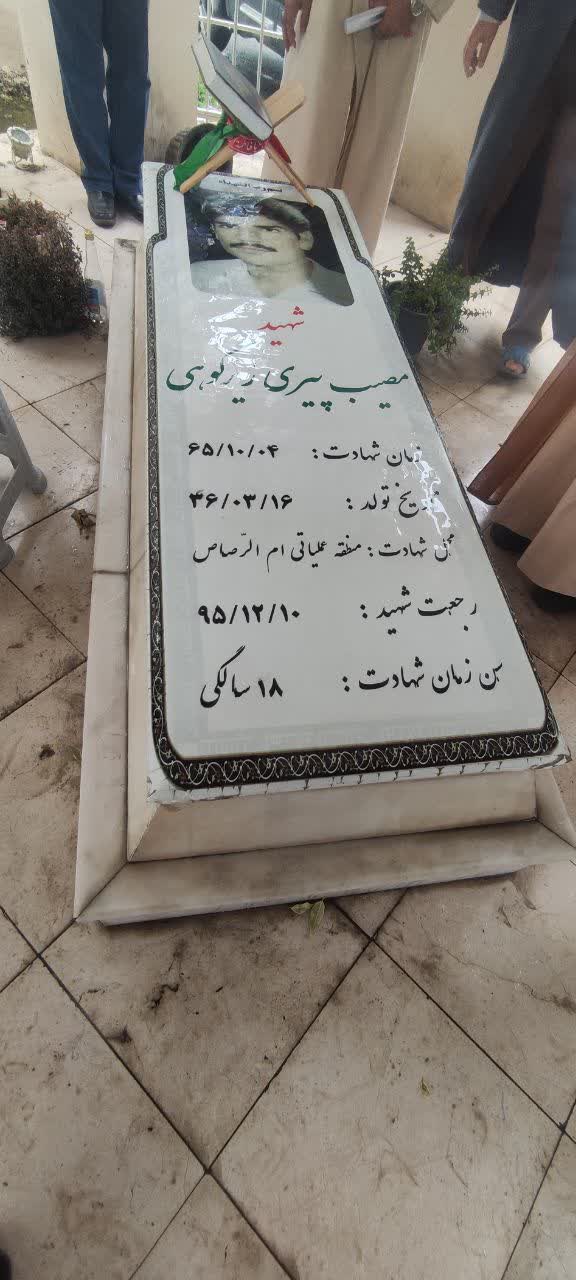 بسم رب الشهداء
شهید
مصیب پیری زیرکوهی
زمان شهادت : ۶۵/۱۰/۰۴
تاریخ تولد : ۴۶/۰۳/۱۶
محل شهادت : منقه عملیاتی ام الرّصاص
رجعت شهید : ۹۵/۱۲/۱۰
سن زمان شهادت : ۱۸ سالگی